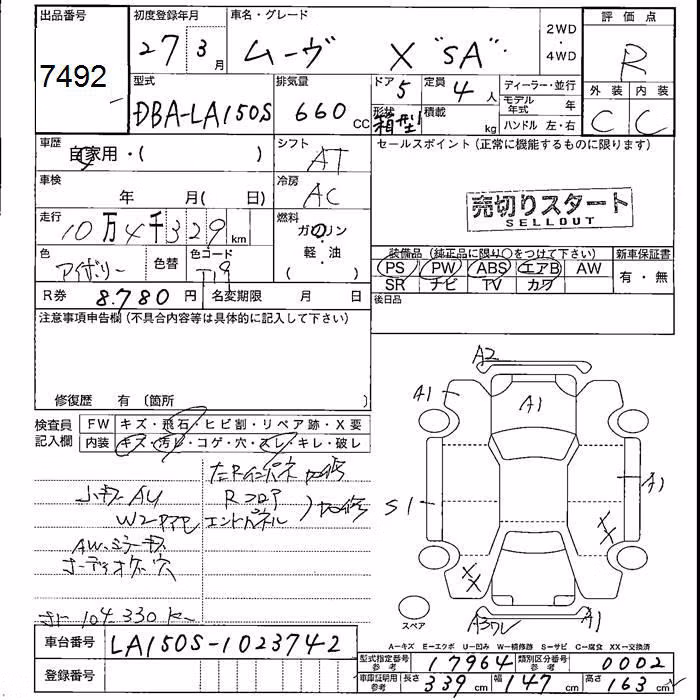 出品番号 初度登録年月 車名・グレード 2WD・4WD 評価点
7492 27 3月 ムーヴ X "SA" R
型式 排気量 ドア 5 定員 4人 ディーラー・並行 外装 内装
DBA-LA150S 660cc 形状 箱型 積載 kg モデル年式 年 C C
ハンドル 左・右
車歴 自家用・( ) シフト AT セールスポイント (正常に機能するものに限ります)
車検 年 月( 日) 冷房 AC
売切りスタート
SELLOUT
走行 10万4千329km 燃料 ガソリン・軽・油 ( )
色 アイボリー 色替 色コード T19
装備品 (純正品に限り○をつけて下さい) 新車保証書
PS PW ABS エアB AW 有・無
SR ナビ TV カワ
R券 8.780円 名変期限 月 日 後日品
注意事項申告欄 (不具合内容等は具体的に記入して下さい)
修復歴 有 (箇所 )
検査員記入欄 FW キズ・飛石・ヒビ割・リペア跡・X要
内装 キズ・汚レ・コゲ・穴・スレ・キレ・破レ
左Rインパネ
Rフロア
エンドパネル
AWミラーキズ
オーディオケツ穴
104.330
A2
A1 A1
S1 A1
XX
XX
A1
スペア
A-キズ E-エクボ U-凹み W-補修跡 S-サビ C-腐食 XX-交換済
車台番号 LA150S-1023742
型式指定番号 参考 17964 類別区分番号 参考 0002
登録番号
車庫証明用 参考 長さ 339cm 幅 147cm 高さ 163cm